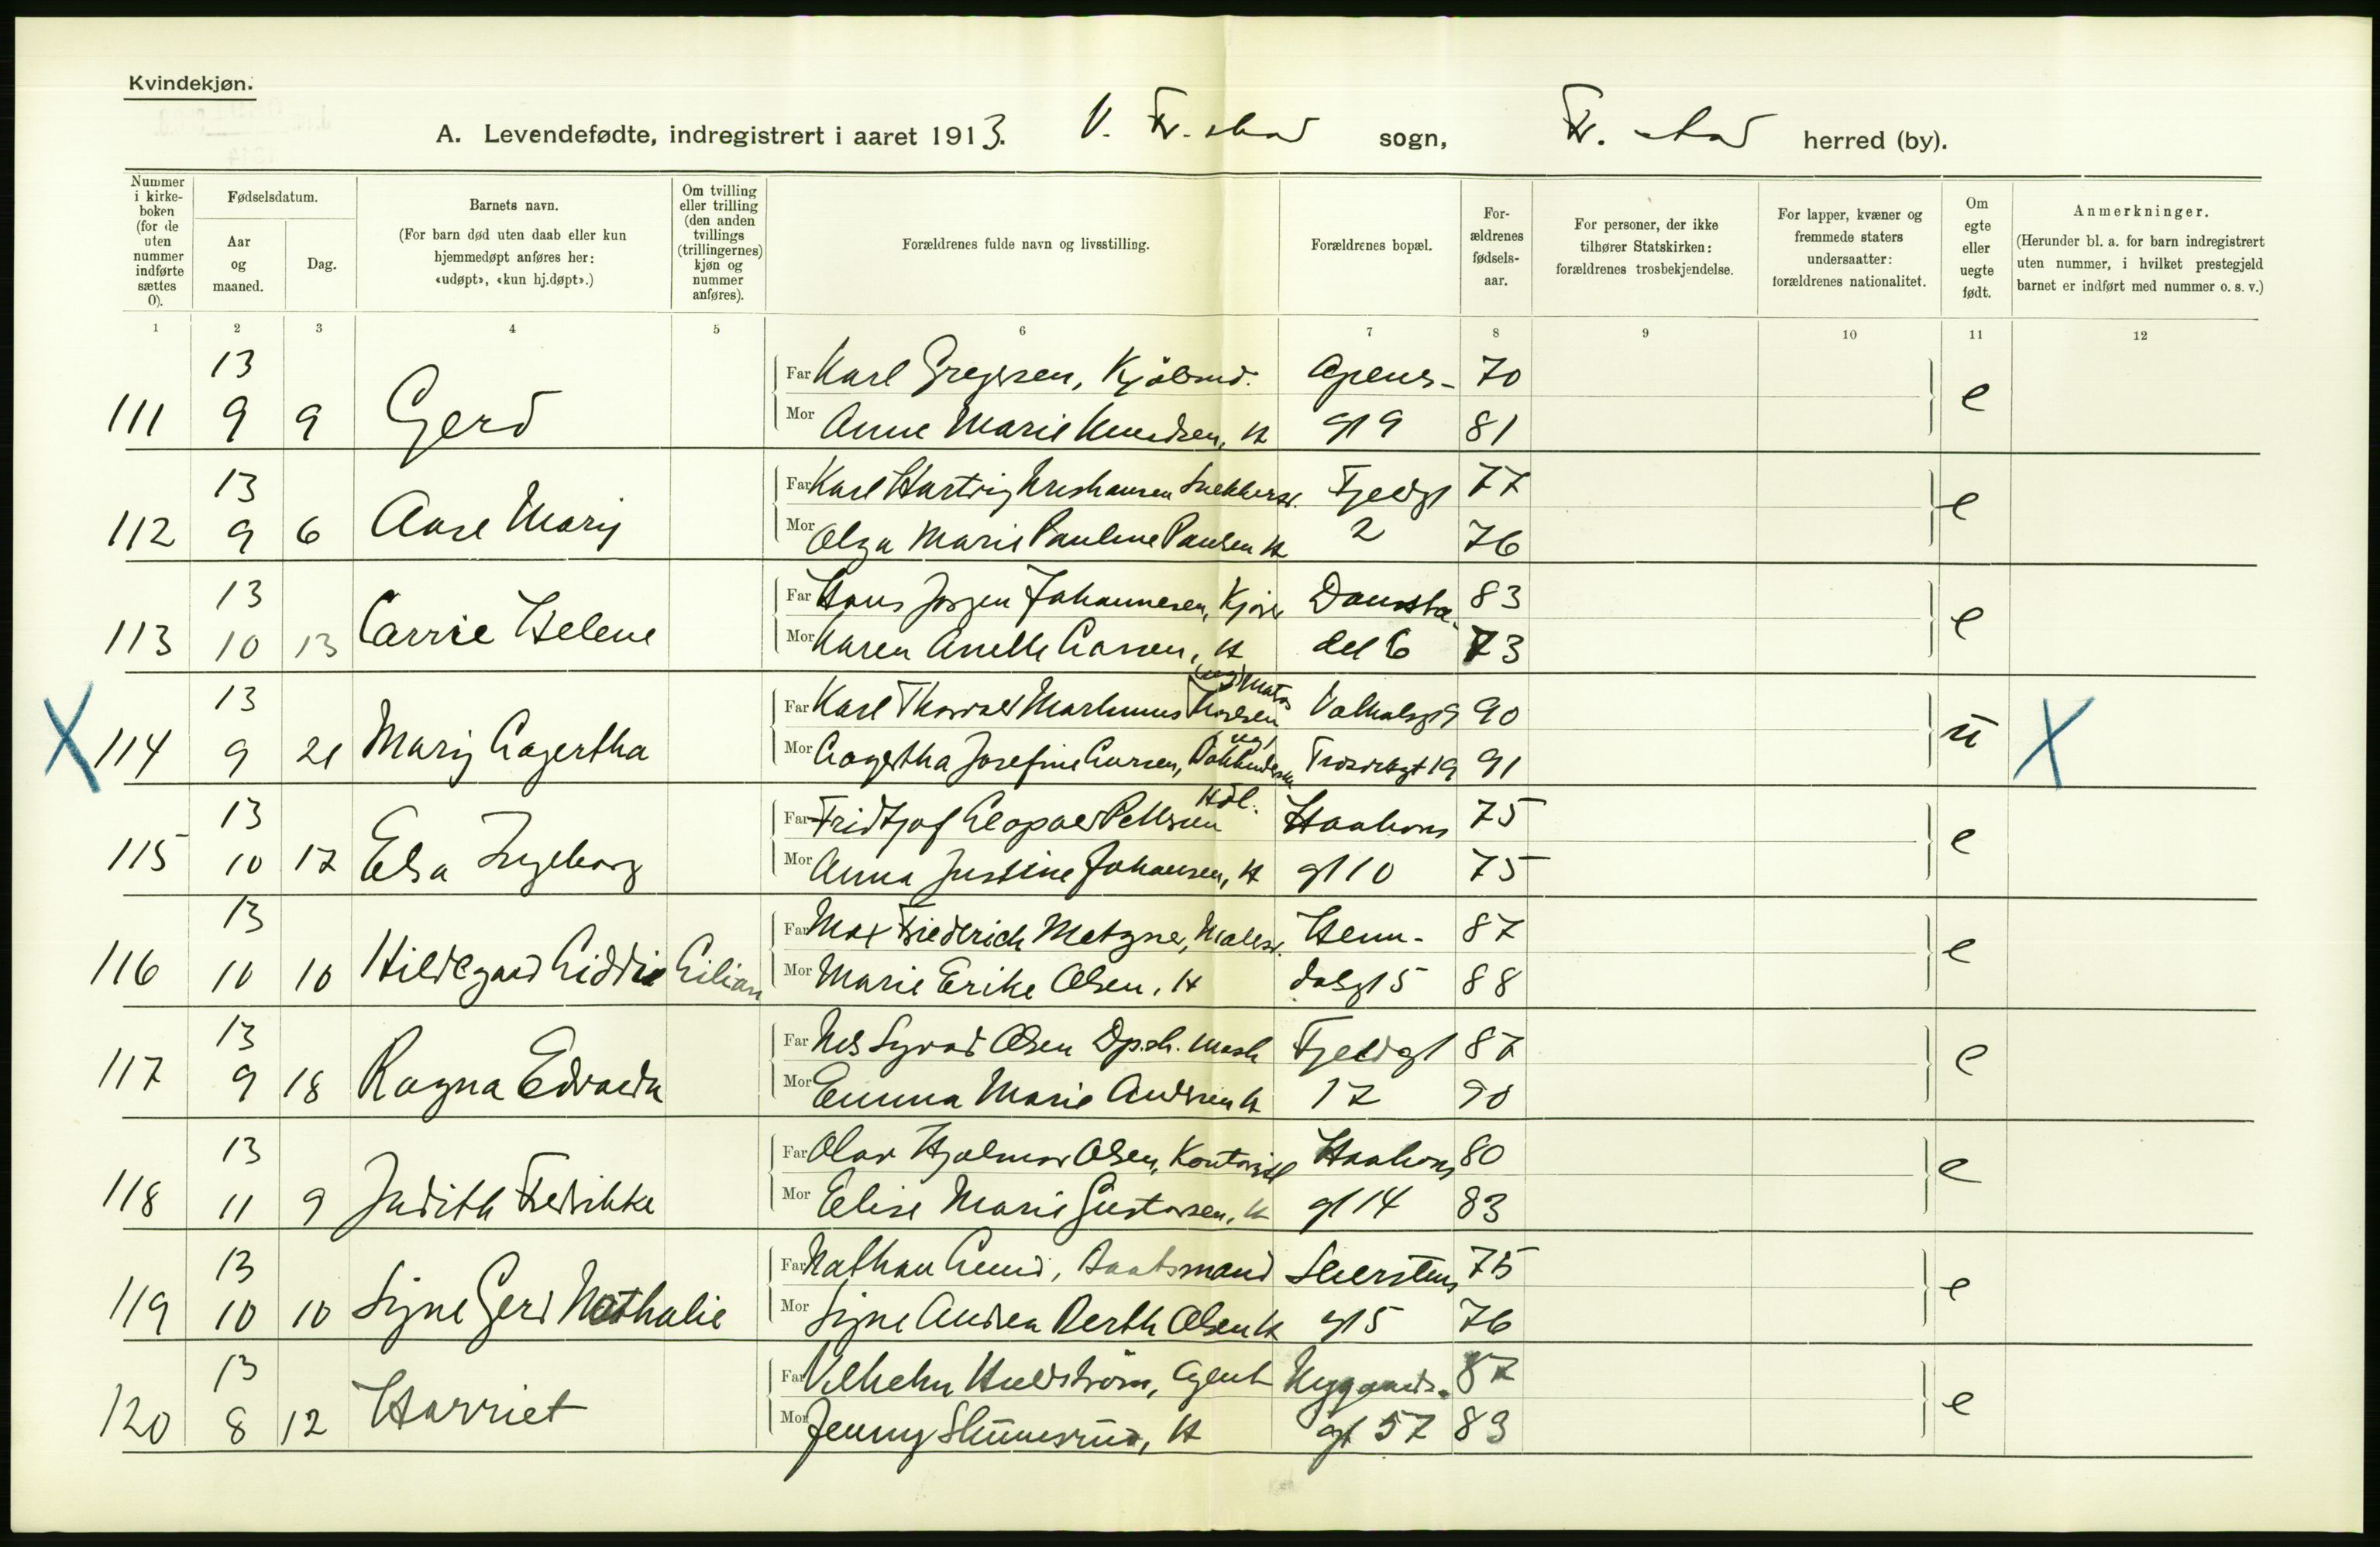 Kvindekjøn.
A. Levendefødte, indregistrert i aaret 1913. V. Fr.stad sogn, Fr.stad herred (by).
Nummer i kirke-boken (for de uten nummer indførte sættes 0).
Fødselsdatum.
Aar og maaned.
Dag.
Barnets navn.
(For barn død uten daab eller kun hjemmedøpt anføres her: «udøpt», «kun hj.døpt».)
Om tvilling eller trilling (den anden tvillings (trillingernes) kjøn og nummer anføres).
Forældrenes fulde navn og livsstilling.
Forældrenes bopæl.
For-ældrenes fødsels-aar.
For personer, der ikke tilhører Statskirken: forældrenes trosbekjendelse.
For lapper, kvæner og fremmede staters undersaatter: forældrenes nationalitet.
Om egte eller uegte født.
Anmerkninger.
(Herunder bl. a. for barn indregistrert uten nummer, i hvilket prestegjeld barnet er indført med nummer o. s. v.)
1 2 3 4 5 6 7 8 9 10 11 12
13 Far Karl Gregersen, Kjøbmd. Apenes- 70
111 9 9 Gerd Mor Anne Marie Knudsen, H gt 9 81 e
13 Far Karl Hartvig Fjeldgt 77
112 9 6 Aase Mary Mor Olga Marie Pauline Paulsen H 2 76 e
13 Far Hans Jørgen Johannesen, Damsta- 83
113 10 13 Carrie Helene Mor Karen Larsen, H del 6 73 e
13 Far Karl Thorvald Marhinus Karlsen ug Matros Valhalsgt 9 90
X 114 9 21 Mary Lagertha Mor Lagertha Josefine Larsen, ug 19 91 u X
13 Far Fridtjof Leopold Pettersen Hdl. Haakons 75
115 10 17 Elsa Ingeborg Mor Anna Justine Johansen, H gt 10 75 e
13 Far Max Friederich Metzner, Malers. Henn- 87
116 10 10 Hildegard Liddie Lilian Mor Marie Erike Olsen, H dalsgt 5 88 e
13 Far Nils Syvert Olsen Dpsk. mask Fjeldgt 87
117 9 18 Ragna Edvarda Mor Emma Marie Andersen H 17 90 e
13 Far Olav Hjalmar Olsen, Kontorist Haakons 80
118 11 9 Judith Fredrikke Mor Elise Marie Gustavsen, H gt 14 83 e
13 Far Nathan Lund, Baatsmand 75
119 10 10 Signe Gerd Nathalie Mor Signe Andrea Berth Olsen H gt 5 76 e
13 Far Vilhelm Huldstrøm, Agent Nygaards- 87
120 8 12 Harriet Mor Jenny H gt 57 83 e